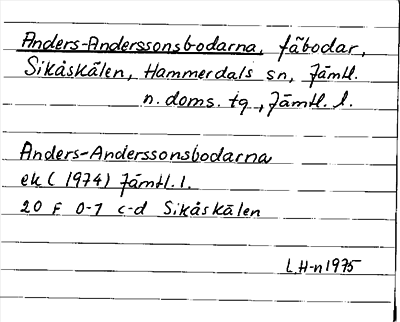 Anders-Anderssonsbodarna, fäbodar,
Sikåskälen, Hammerdals sn, Jämtl.
n. doms. tg, Jämtl. l.
Anders-Anderssonsbodarna
ek (1974) Jämtl. l.
20 F 0-1 c-d Sikåskälen
L.H-n 1975